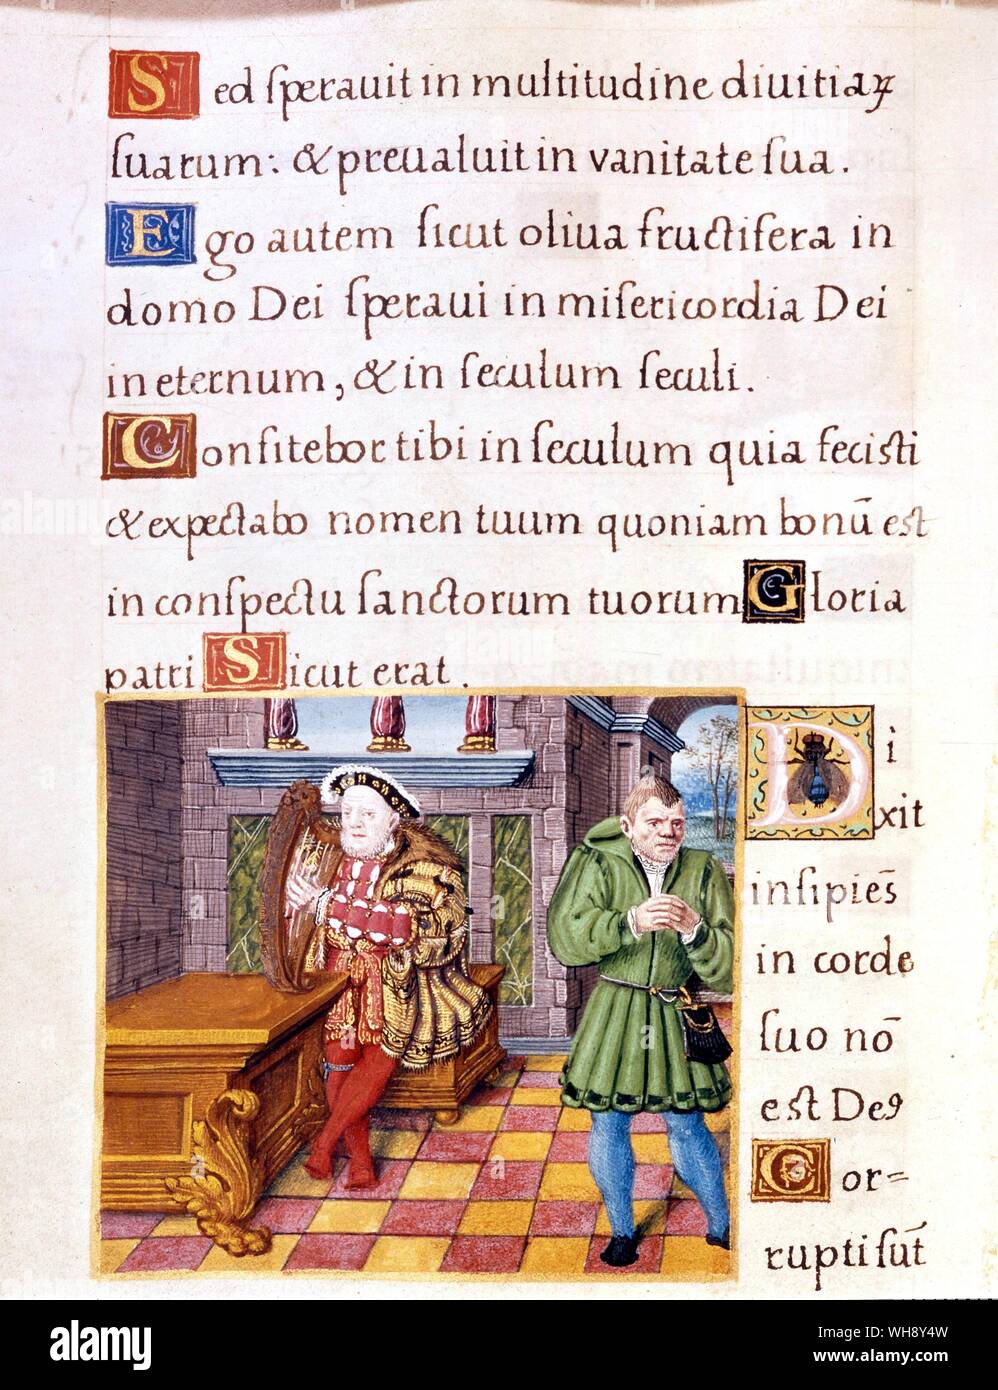 Sed ſperauit in multitudine diuitiaꝝ
ſuarum: & preualuit in vanitate ſua.
Ego autem ſicut oliua fructifera in
domo Dei ſperaui in miſericordia Dei
in eternum, & in ſeculum ſeculi.
Confitebor tibi in ſeculum quia feciſti
& expectabo nomen tuum quoniam bonū eſt
in conſpectu ſanctorum tuorum Gloria
patri Sicut erat.
Di
xit
inſipiēs
in corde
ſuo nō
eſt Deꝯ
Cor=
rupti ſūt
alamy
Image ID: WH8Y4W
www.alamy.com